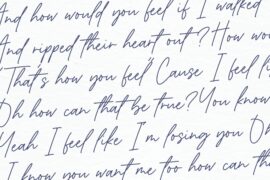 And how would you feel if I walked
And ripped their heart out? How wou
"That's how you feel" Cause I feel l
Oh how can that be true? You know
Yeah I feel like I'm losing you O
I know you want me too how can th